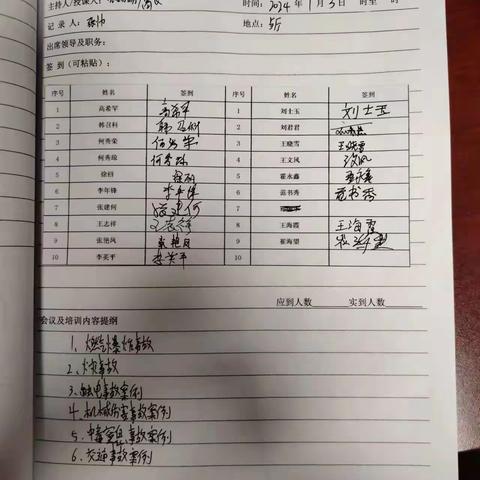 主持人/授课人：
时间：2024年1月3日 时至 时
记录人：
地点：
出席领导及职务：
签到（可粘贴）：
序号 姓名 签到 序号 姓名 签到
1 高希罕 高希罕 1 刘士玉 刘士玉
2 韩召科 2 刘君君
3 何秀荣 何秀荣 3 王晓雪 王晓雪
4 何秀琼 4 王文风
5 徐娟 5 翟永鑫
6 李年锋 李年锋 6 范书秀 范书秀
7 张建何 张建何 7
8 王志祥 王志祥 8 王海霞 王海霞
9 张艳凤 张艳凤 9 崔海望
10 李英平 李英平 10
应到人数 实到人数
会议及培训内容提纲
1、燃气爆炸事故
2、火灾事故
3、触电事故案例
4、机械伤害事故案例
5、中毒窒息事故案例
6、交通事故案例